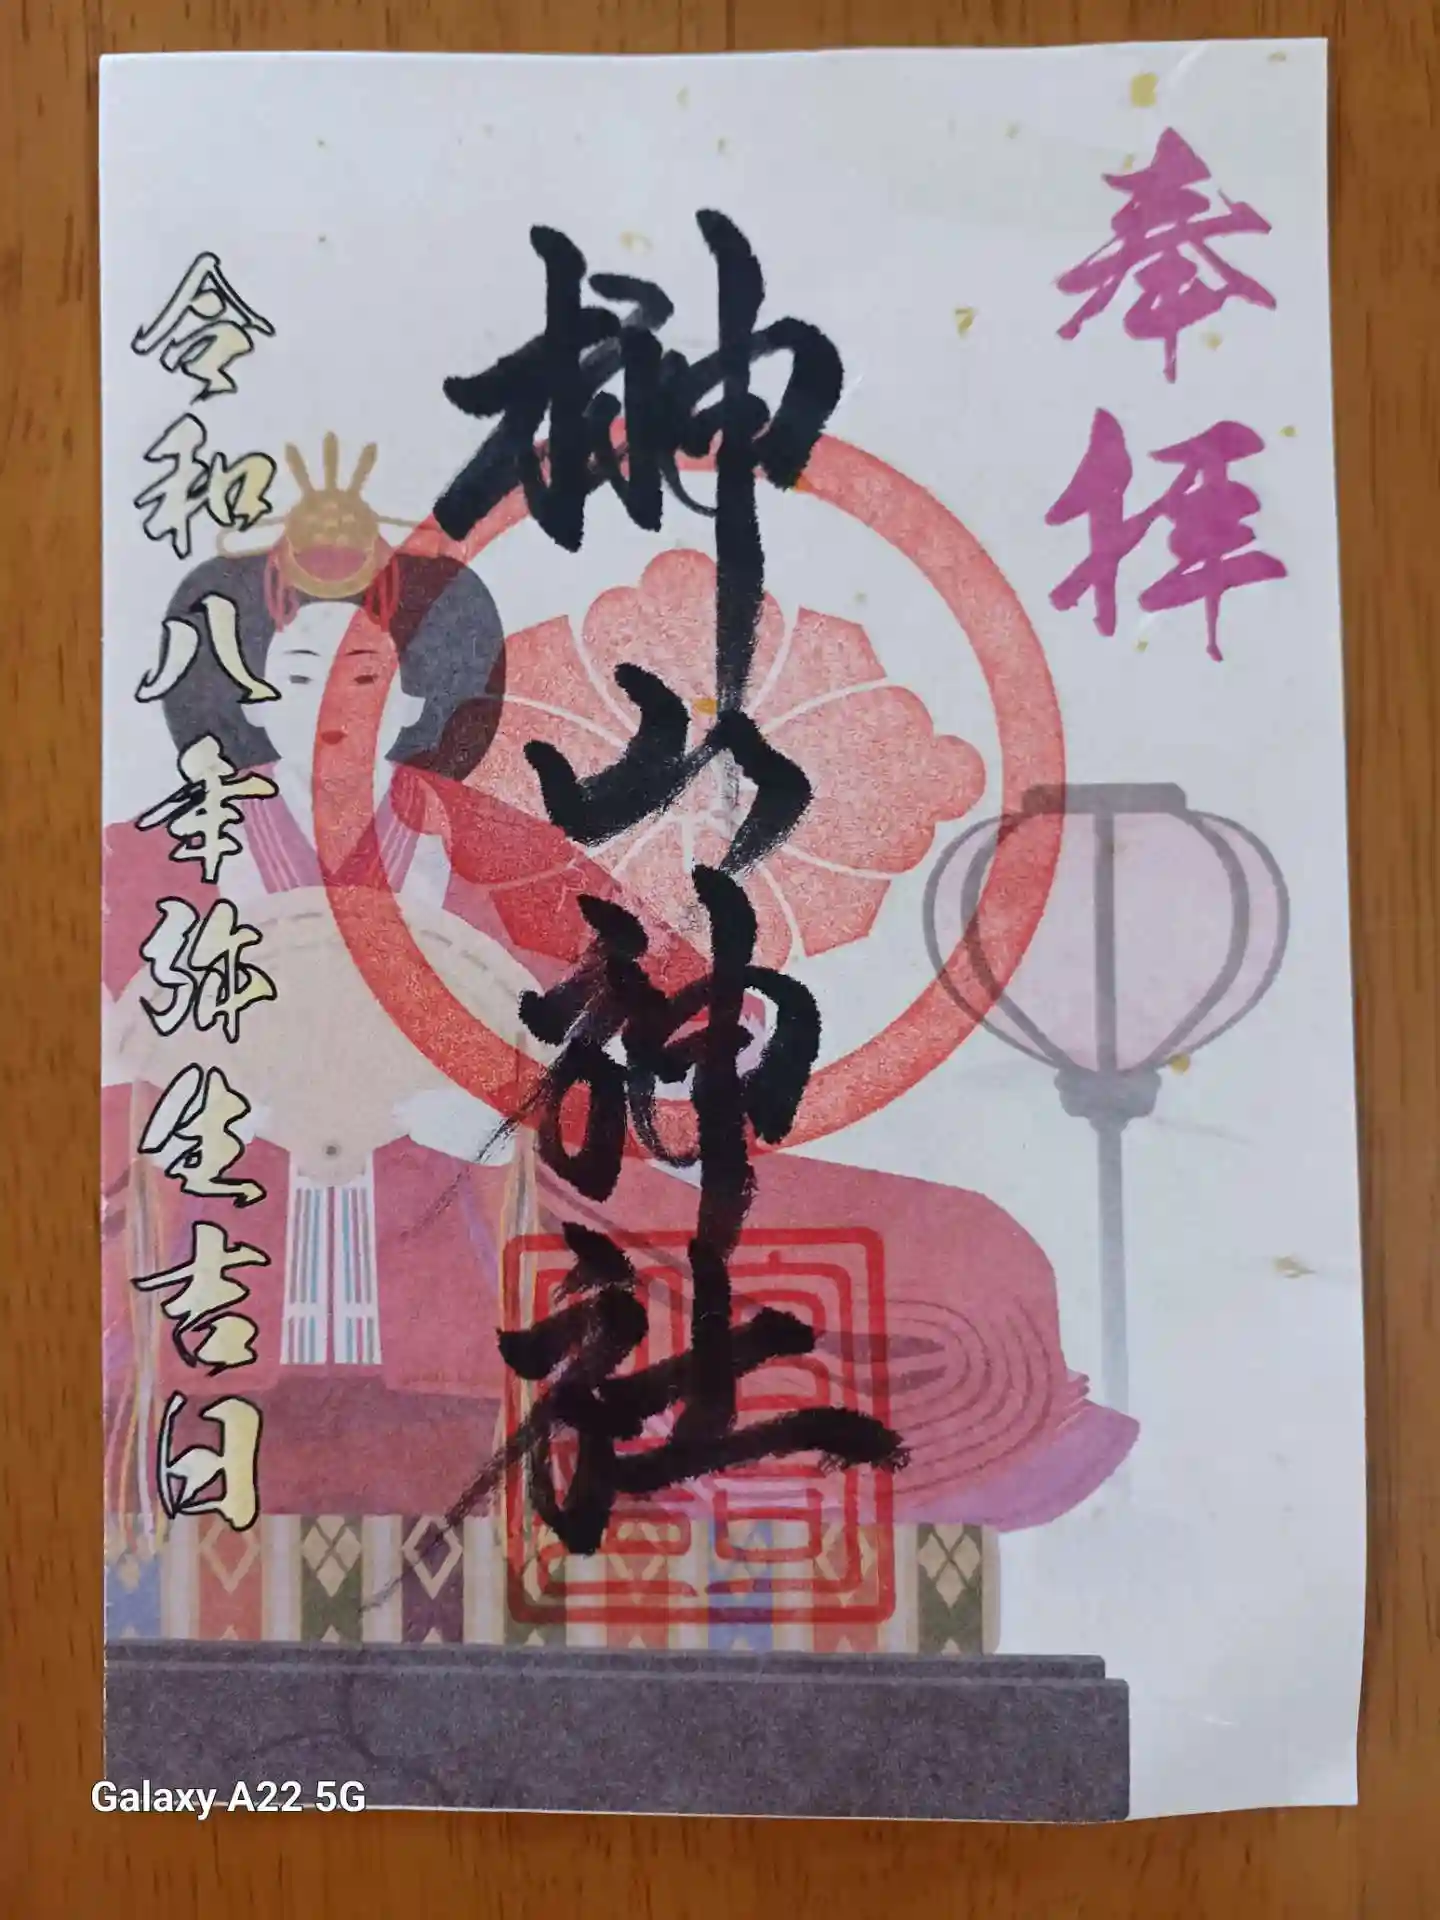 奉拝
榊山神社
令和八年弥生吉日
Galaxy A22 5G